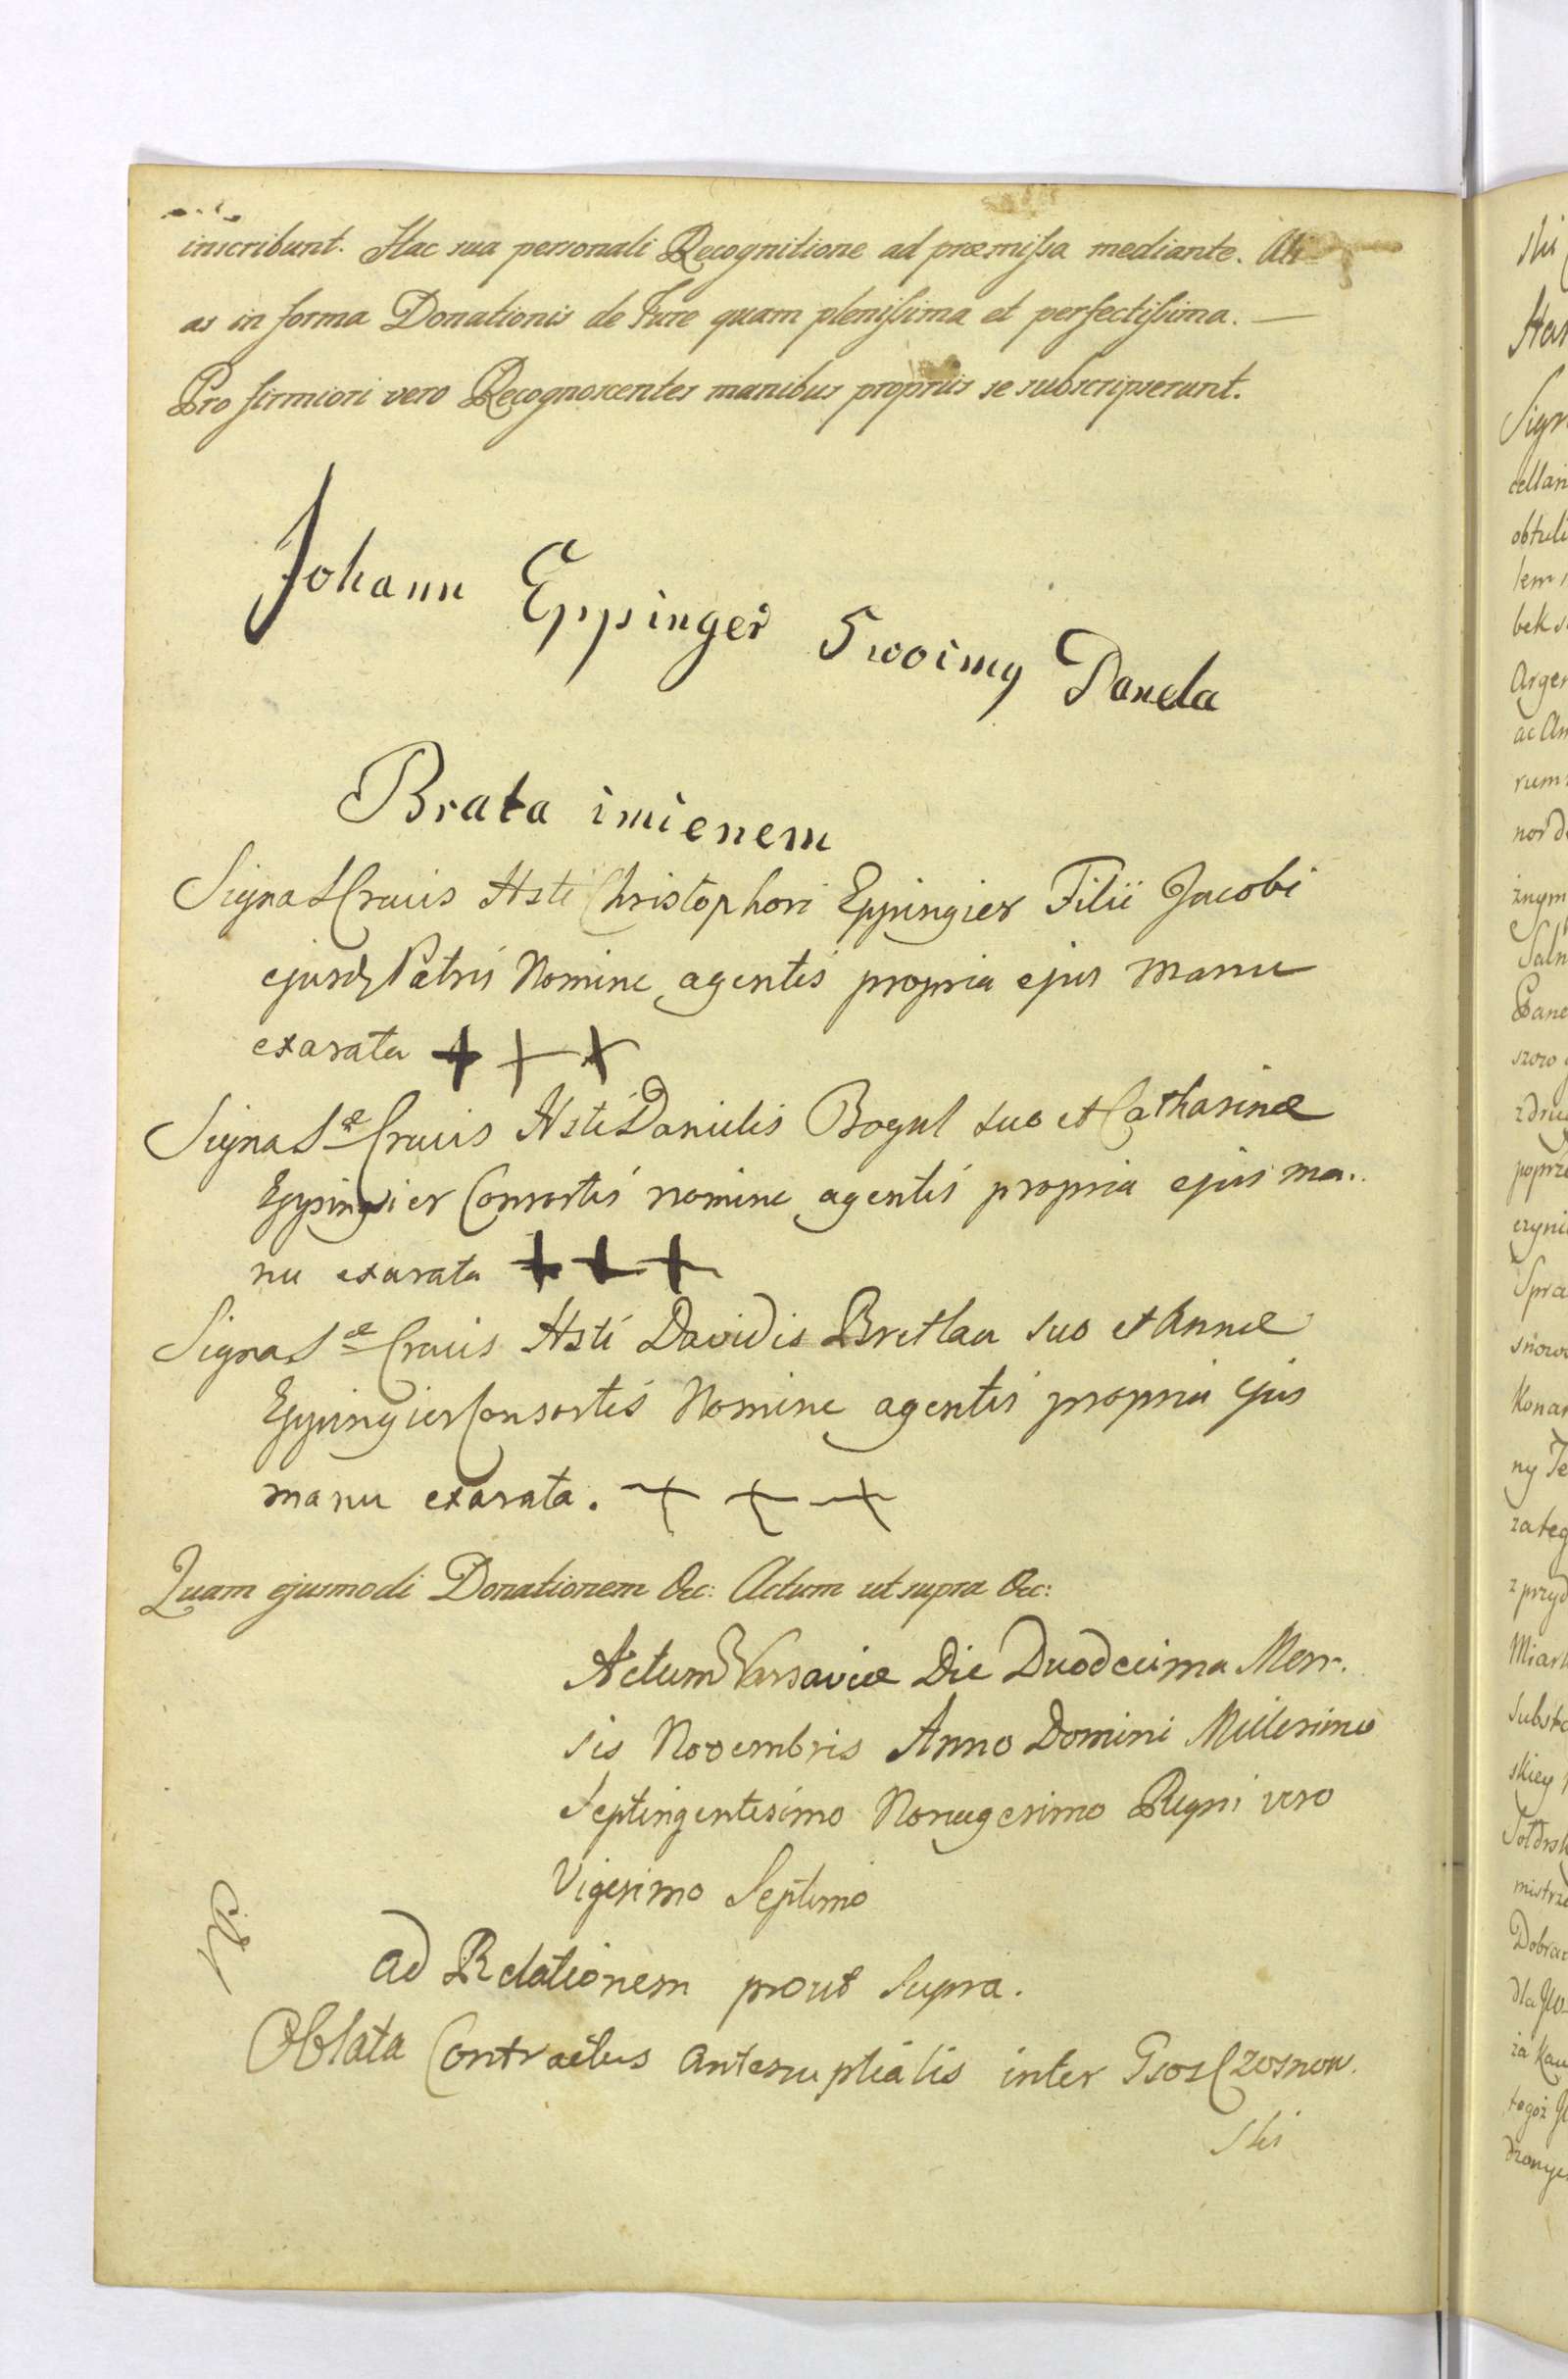 inscribunt. Hac sua personali Recognitione ad præmissa mediante. Ali
as in forma Donationis de Jure quam plenissima et perfectissima. —
Pro firmiori vero Recognoscentes manibus propriis se subscripserunt.
Johann Eppinger Swoimy Danela
Brata imienem
Signa S Crucis Hsti Christophori Eppingier Filii Jacobi
ejusdq Patris Nomine agentis propria ejus manu
exarata + + +
Signa Sæ Crucis Hsti Danielis Bogul suo et Catharinæ
Eppingier Consortis nomine agentis propria ejus ma..
nu exarata + + +
Signa Sæ Crucis Hsti Davidis Bretlau suo et Annæ
Eppingier Consortis Nomine agentis propria ejus
manu exarata. + + +
Quam ejusmodi Donationem &c: Actum ut supra &c:
Actum Varsaviæ Die Duodecima Men-
sis Novembris Anno Domini Millesimo
Septingentesimo Nonagesimo Regni vero
Vigesimo Septimo
ad Relationem prout supra.
Oblata Contractus antenuptialis inter Gsos Czosnow.
ski